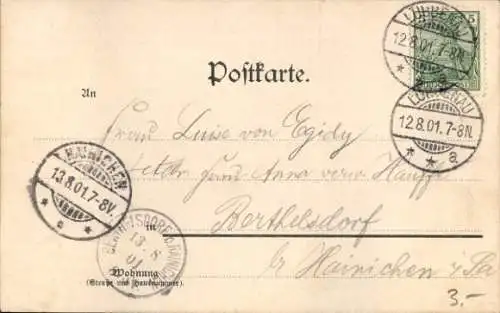 LÜBBENAU
12.8.01.7-8N.
5
Postkarte.
LÜBBENAU
12.8.01.7-8N.
* * a
An
Frau Luise von Egidy
Frau Anna verw Hauffe
HAINICHEN
13.8.01.7-8V.
* c *
Berthelsdorf
BERTHELSDORF b. HAINICHEN
13 8
01
b/ Hainichen i/Sa
Wohnung
(Straße und Hausnummer)
3.-